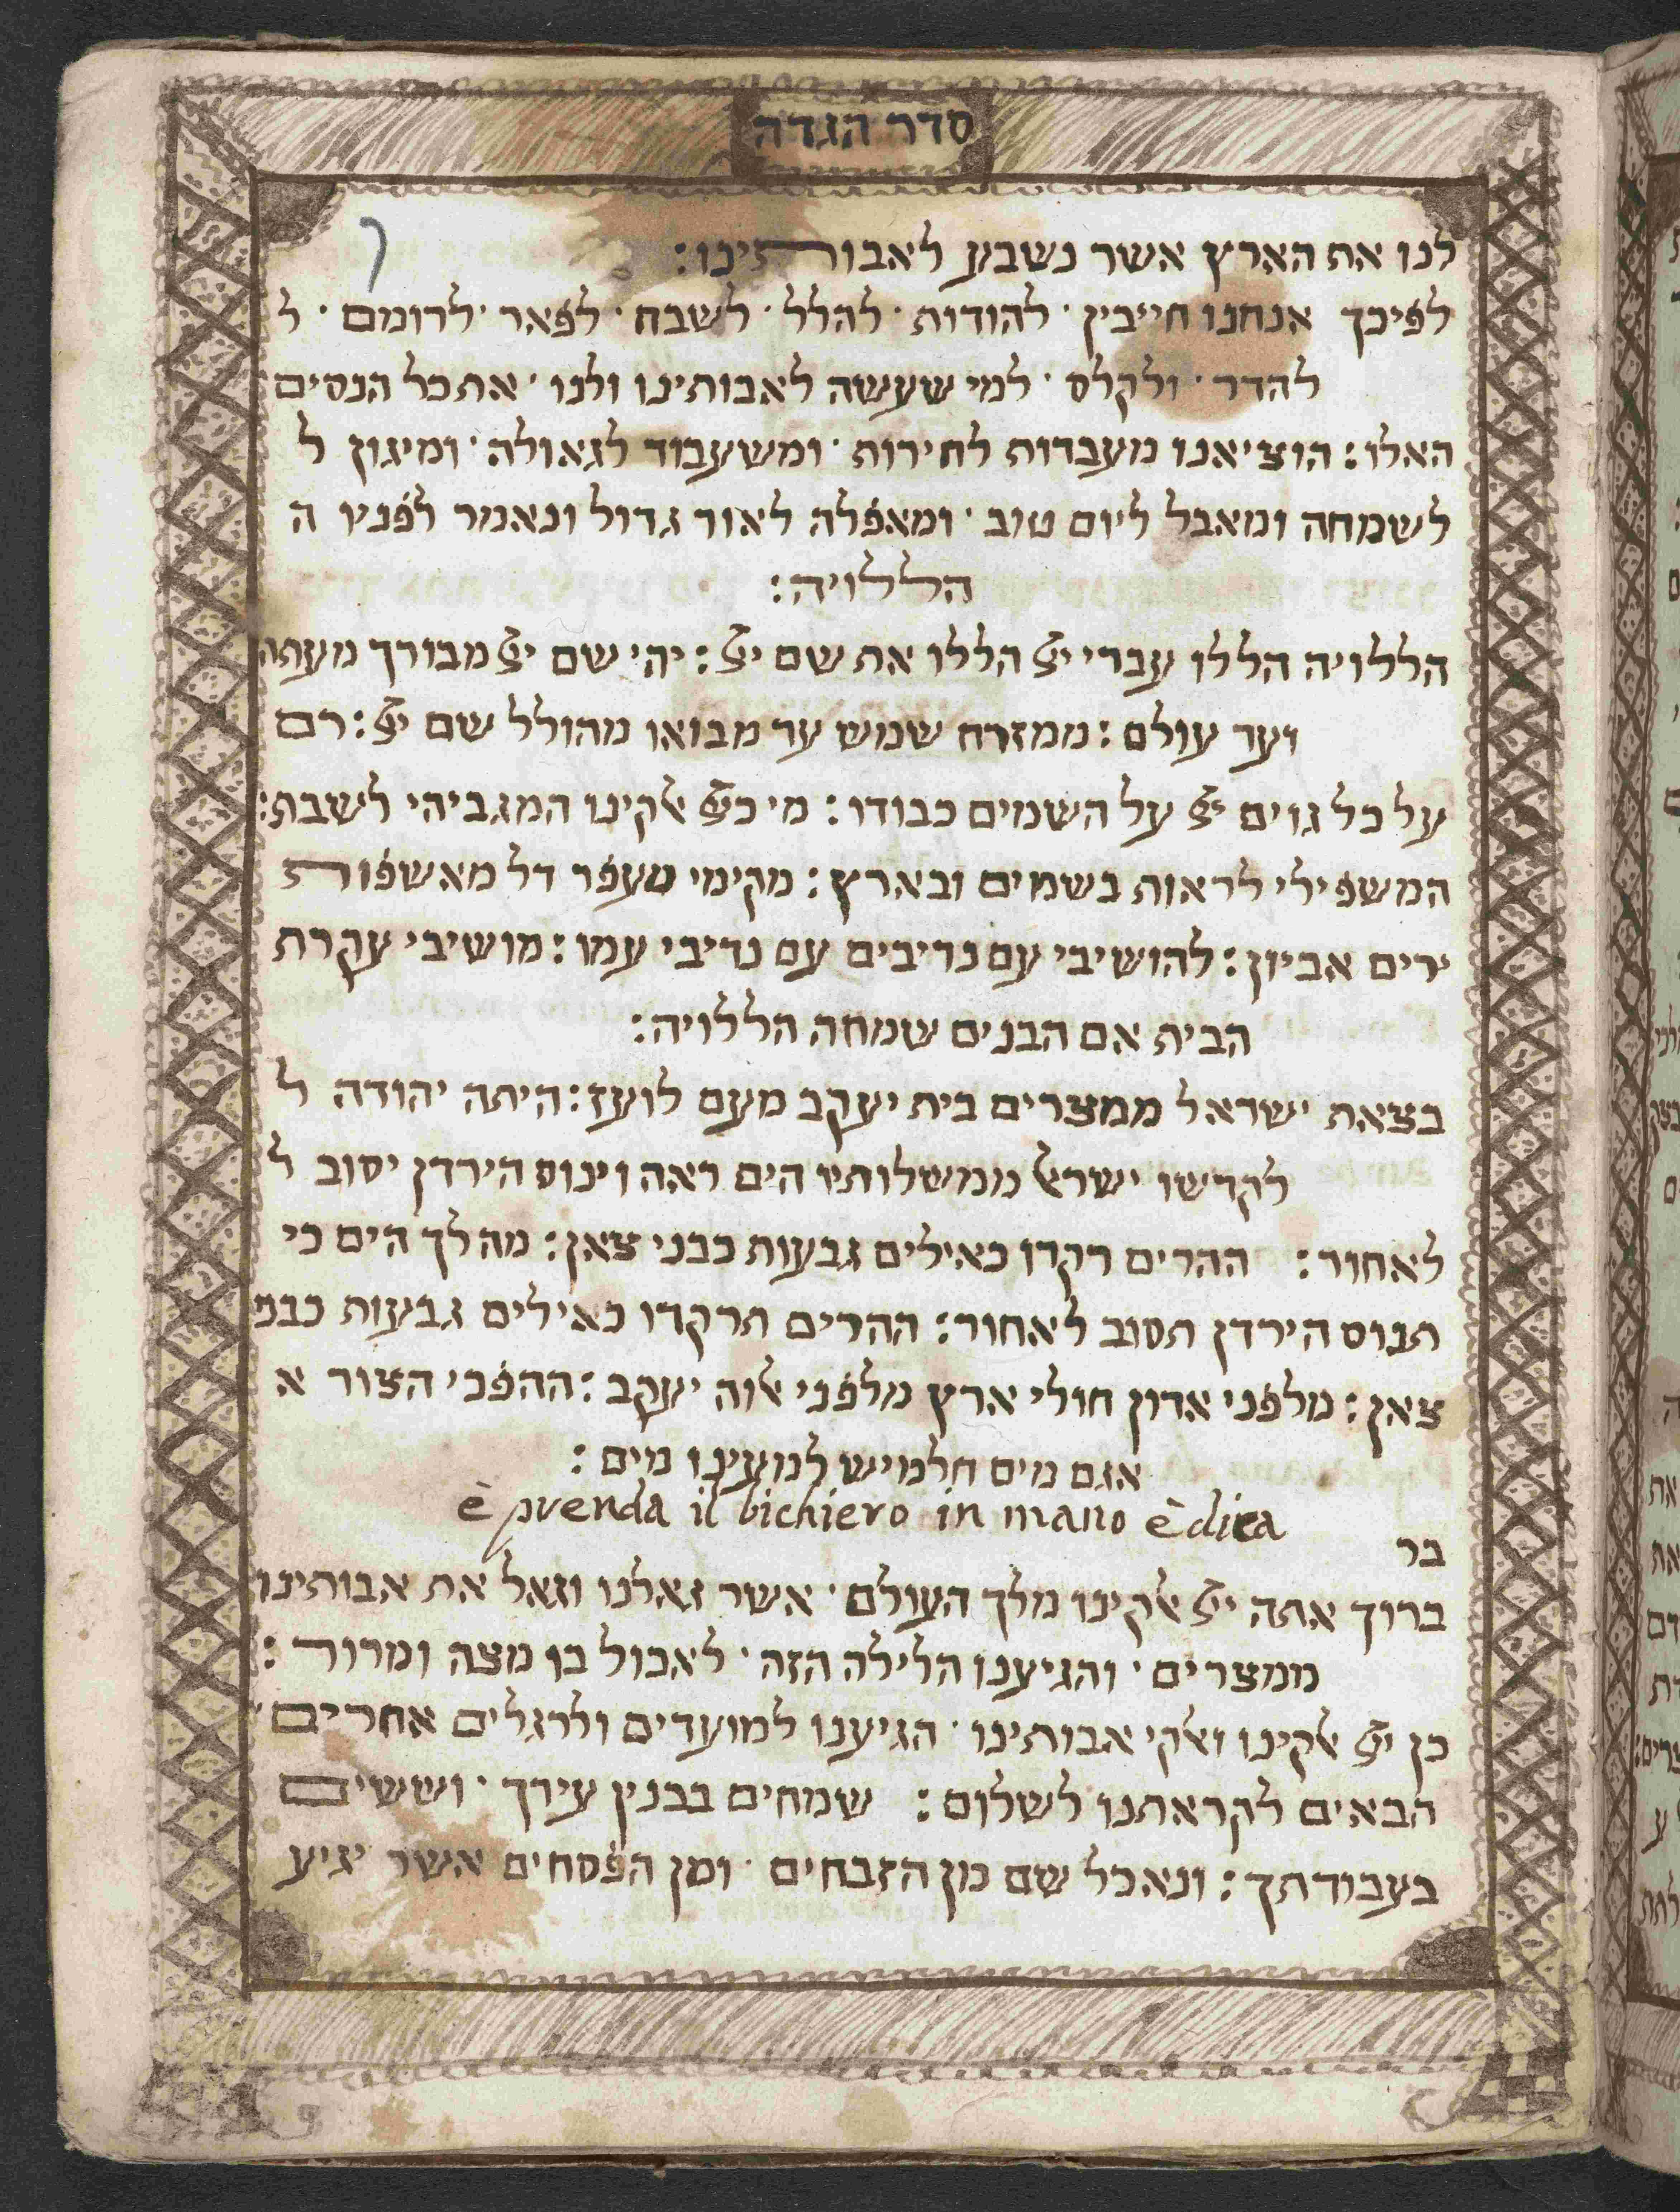 סדר הגדה
לנו את הארץ אשר נשבע לאבותינו:
לפיכך אנחנו חייבין · להודות · להלל · לשבח · לפאר · לרומם · ל
להדר · ולקלס · למי שעשה לאבותינו ולנו · את כל הנסים
האלו: הוציאנו מעבדות לחירות · ומשעבוד לגאולה · ומיגון ל
לשמחה ומאבל ליום טוב · ומאפלה לאור גדול ונאמר לפניו ה
הללויה:
הללויה הללו עבדי יי הללו את שם יי: יהי שם יי מבורך מעתה
ועד עולם: ממזרח שמש עד מבואו מהולל שם יי: רם
על כל גוים יי על השמים כבודו: מי כיי אלקינו המגביהי לשבת:
המשפילי לראות בשמים ובארץ: מקימי מעפר דל מאשפות
ירים אביון: להושיבי עם נדיבים עם נדיבי עמו: מושיבי עקרת
הבית אם הבנים שמחה הללויה:
בצאת ישראל ממצרים בית יעקב מעם לועז: היתה יהודה ל
לקדשו ישראל ממשלותיו הים ראה וינוס הירדן יסוב ל
לאחור: ההרים רקדו כאילים גבעות כבני צאן: מה לך הים כי
תנוס הירדן תסוב לאחור: ההרים תרקדו כאילים גבעות כבנ
צאן: מלפני אדון חולי ארץ מלפני אלוה יעקב: ההפכי הצור א
אגם מים חלמיש למעינו מים:
è prenda il bichiero in mano è dica
בר
ברוך אתה יי אלקינו מלך העולם · אשר גאלנו וגאל את אבותינו
ממצרים · והגיענו הלילה הזה · לאכול בו מצה ומרור:
כן יי אלקינו ואלקי אבותינו · הגיענו למועדים ולרגלים אחרים
הבאים לקראתנו לשלום: שמחים בבנין עירך · וששים
בעבודתך: ונאכל שם מן הזבחים · ומן הפסחים אשר יגיע